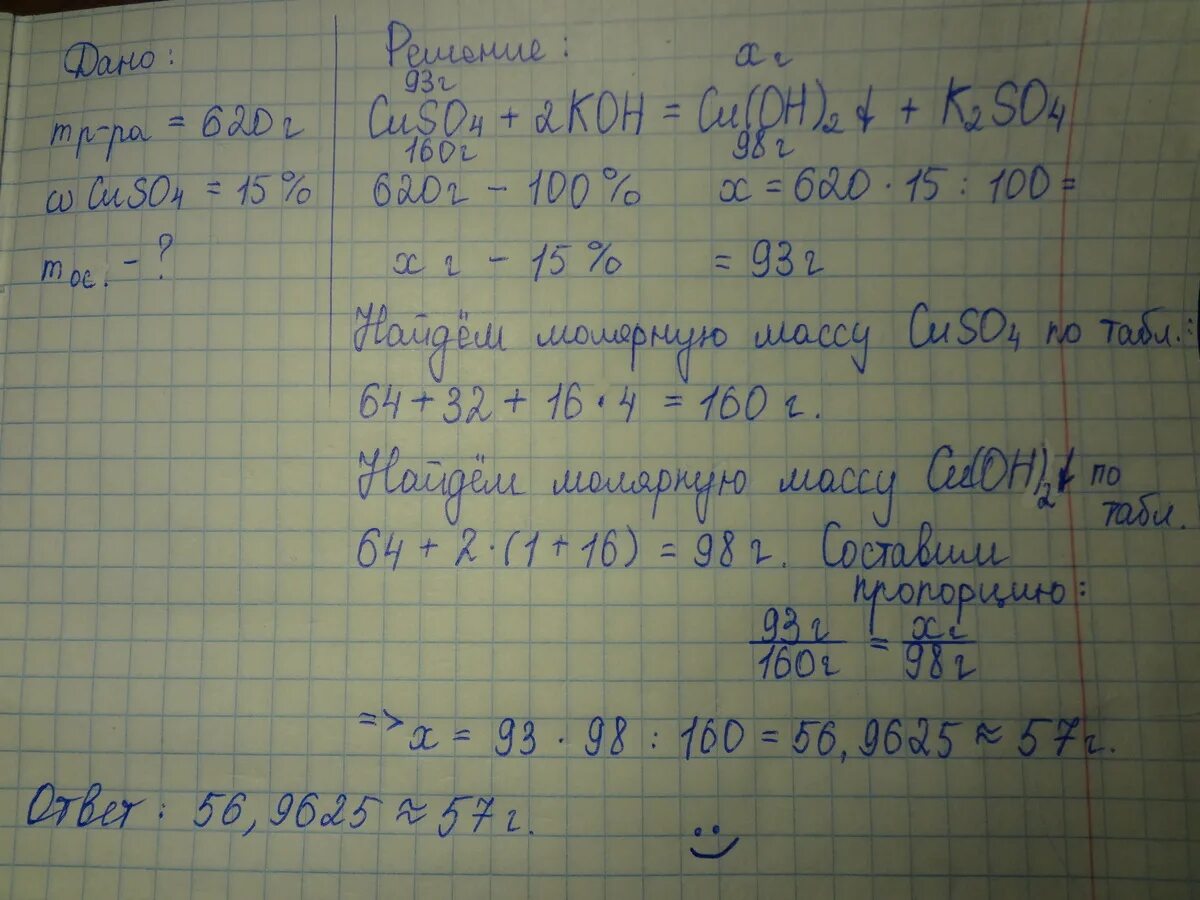 Дано:
mр-ра = 620г
ω CuSO4 = 15%
mос. - ?
Решение:
93г
xг
CuSO4 + 2KOH = Cu(OH)2↓ + K2SO4
160г
98г
620г - 100%
x = 620 · 15 : 100 =
x г - 15%
= 93г
Найдём молярную массу CuSO4 по табл.:
64 + 32 + 16 · 4 = 160 г.
Найдём молярную массу Cu(OH)2↓ по
табл.
64 + 2 · (1 + 16) = 98 г. Составим
пропорцию:
93г/160г = xг/98г
=> x = 93 · 98 : 160 = 56,9625 ≈ 57г.
Ответ: 56,9625 ≈ 57г.